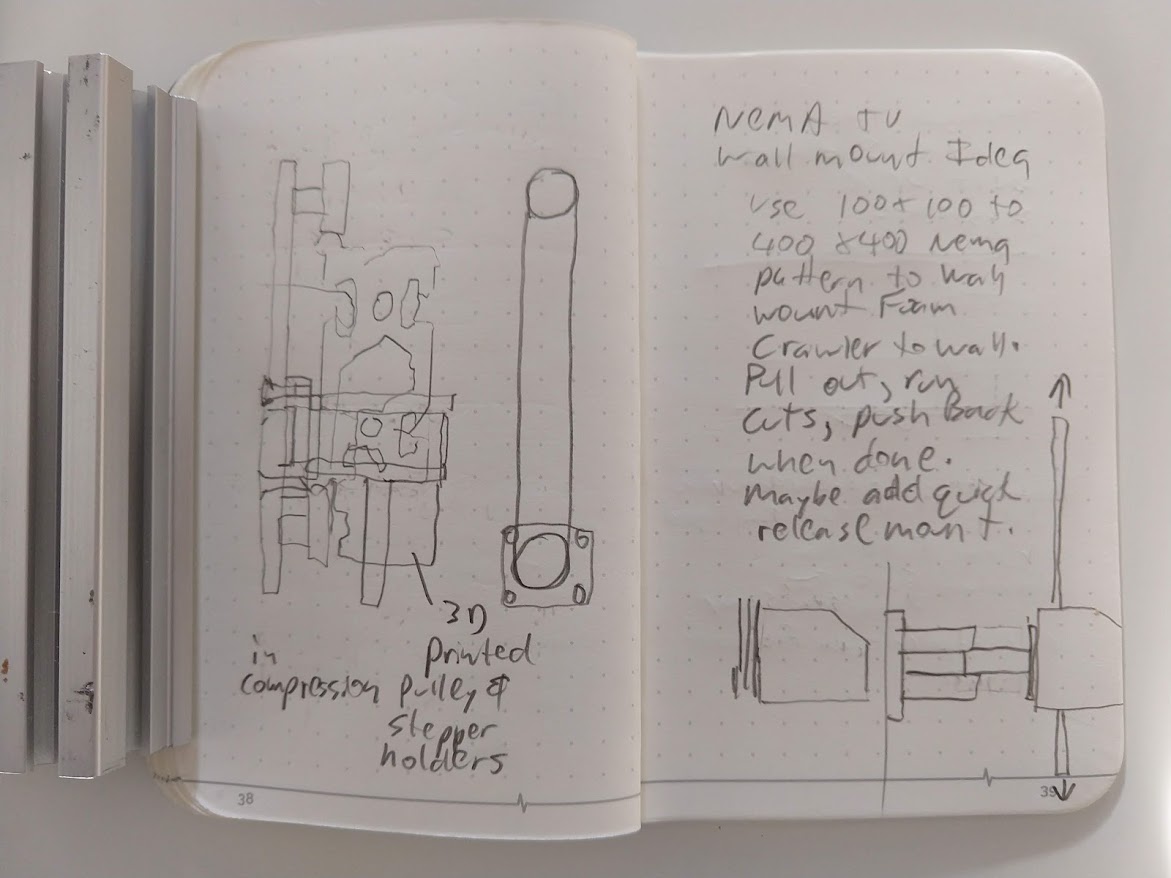 3D
Printed
in
compression pulley &
stepper
holders
38
NEMA TV
wall mount Idea
Use 100x100 to
400x400 Nema
pattern to wall
mount Foam
Crawler to wall.
Pull out, run
cuts, push Back
when done.
maybe add quick
release mount.
39